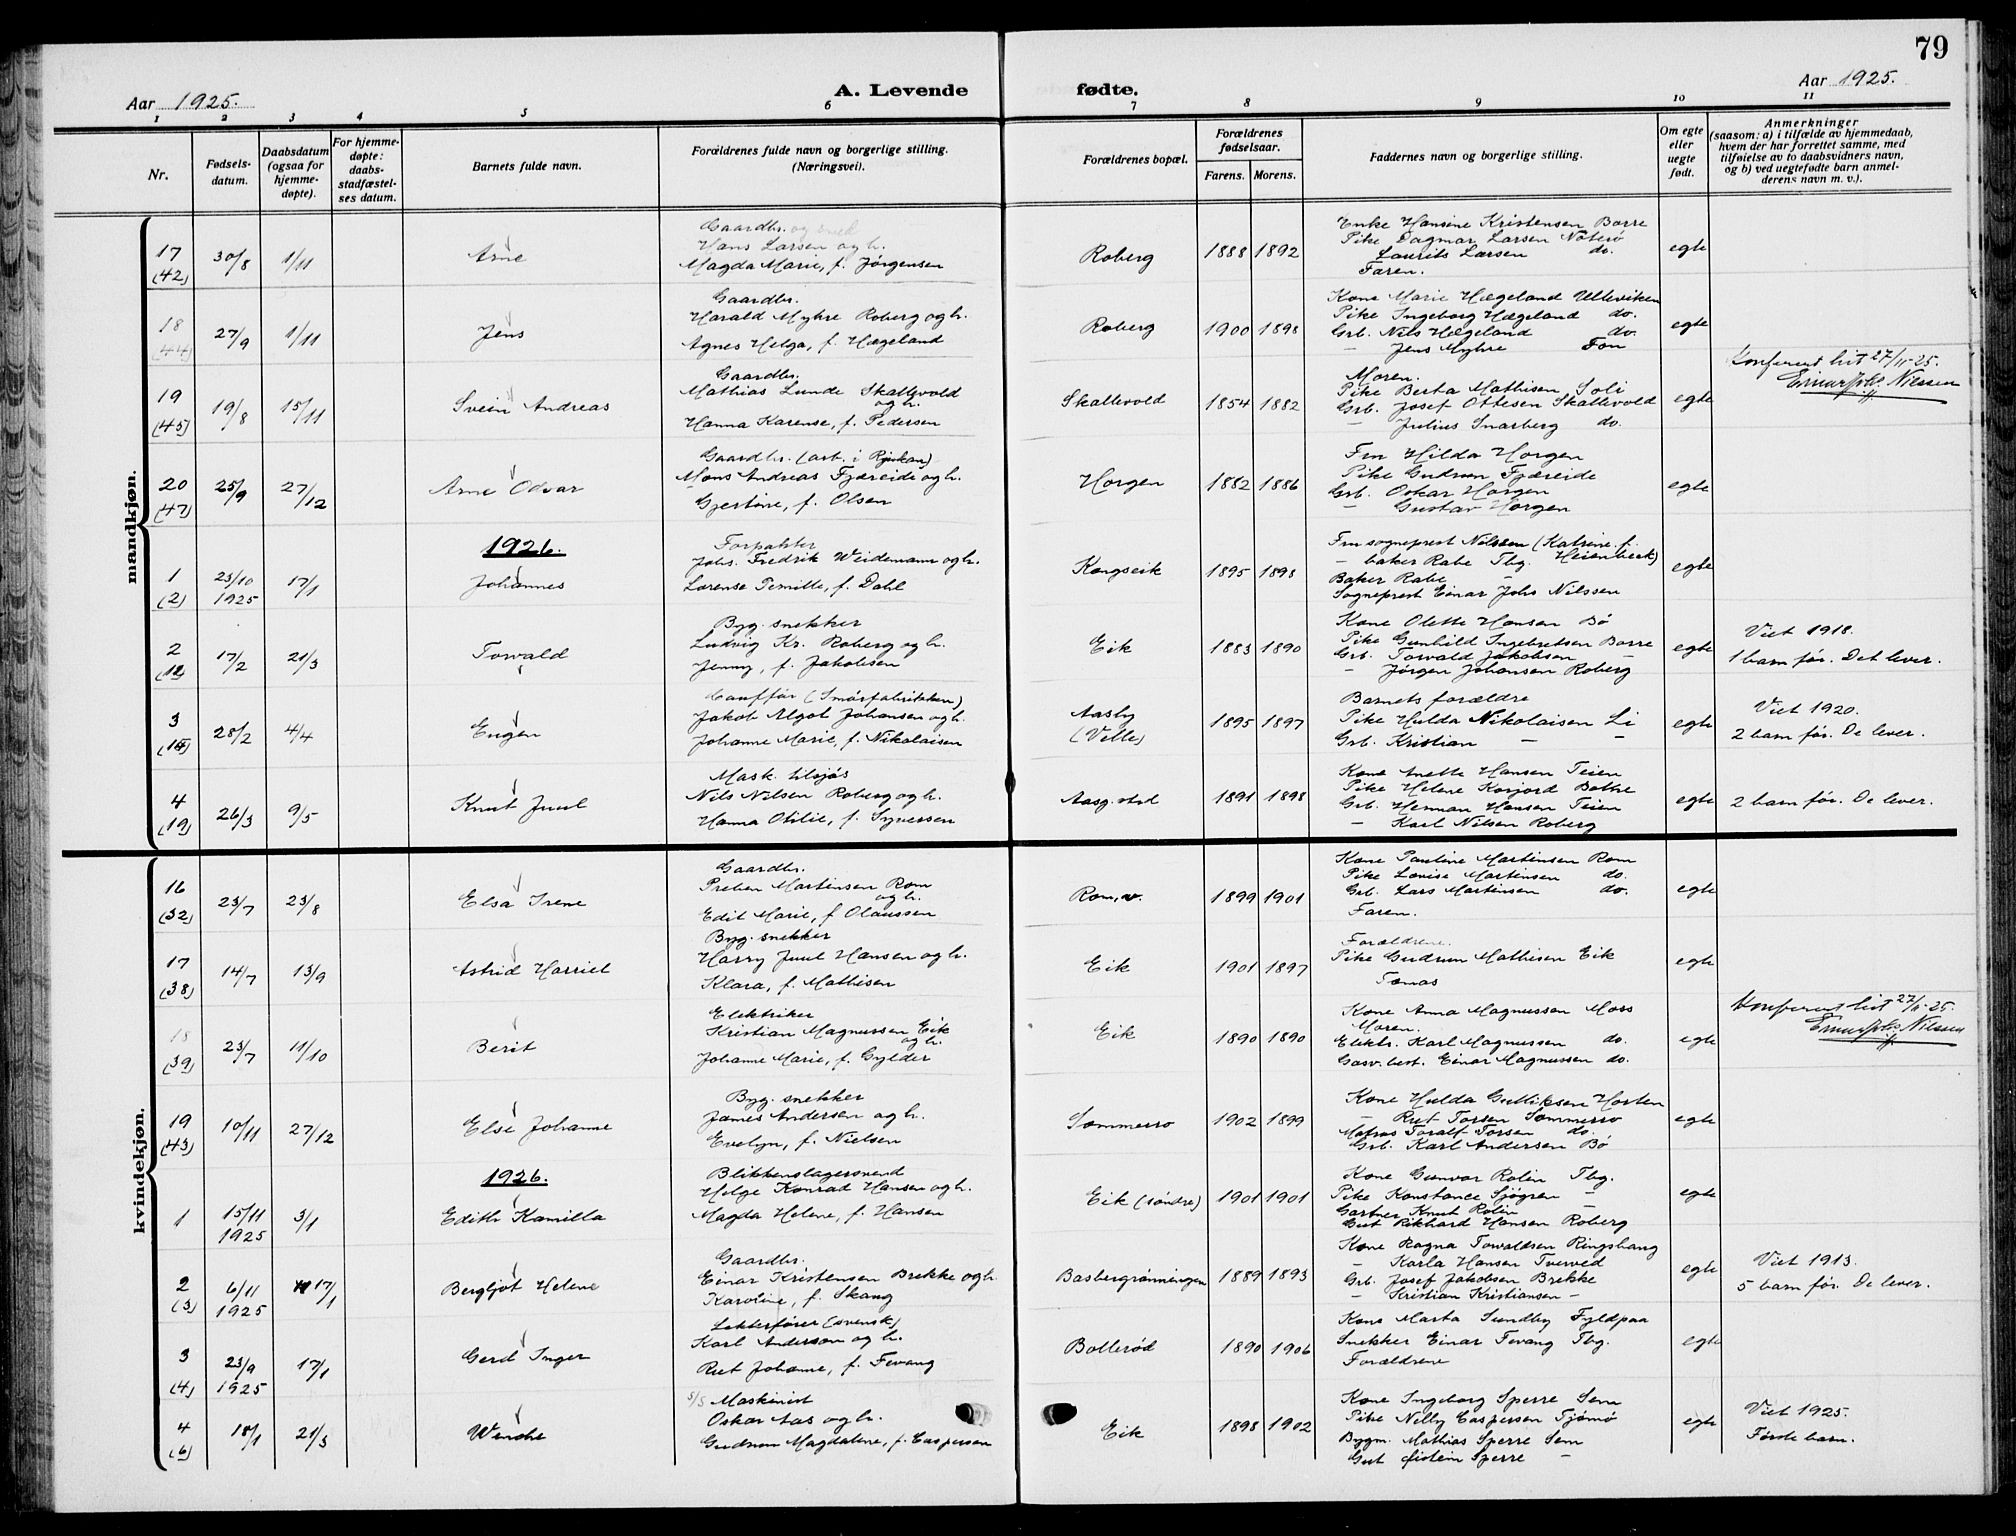 79
Aar 1925. A. Levende fødte. Aar 1925.
1 2 3 4 5 6 7 8 9 10 11
Nr.
Fødsels-
datum.
Daabsdatum
(ogsaa for
hjemme-
døpte).
For hjemme-
døpte:
daabs-
stadfæstel-
ses datum.
Barnets fulde navn.
Forældrenes fulde navn og borgerlige stilling.
(Næringsvei).
Forældrenes bopæl.
Forældrenes
fødselsaar.
Farens. Morens.
Faddernes navn og borgerlige stilling.
Om egte
eller
uegte
født.
Anmerkninger
(saasom: a) i tilfælde av hjemmedaab,
hvem der har forrettet samme, med
tilføielse av to daabsvidners navn,
og b) ved uegtefødte barn anmel-
derens navn m. v.).
mandkjøn.
17
(42)
30/8
1/11
Arne
Gaardbr. og smed
Hans Larsen og h.
Magda Marie, f. Jørgensen
Roberg
1888 1892
Enke Hansine Kristensen Borre
Pike Dagmar Larsen Nøterø
Laurits Larsen do.
Faren.
egte
18
(44)
27/9
1/11
Jens
Gaardbr.
Harald Myhre Roberg og h.
Agnes Helga, f. Hægeland
Roberg
1900 1898
Kone Marie Hægeland Ulleviken
Pike Ingeborg Hægeland do.
Grb. Nils Hægeland do.
— Jens Myhre Fon
egte
19
(45)
19/8
15/11
Svein Andreas
Gaardbr.
Mathias Lunde Skallevold
og h.
Hanna Karense, f. Pedersen
Skallevold
1854 1882
Moren.
Pike Berta Mathisen Soli
Grb. Josef Ottesen Skallevold
— Julius Snarberg do.
egte
Konferert hit 27/11-25.
Einar Johs. Nilssen
20
(47)
25/9
27/12
Arne Odvar
Gaardbr. (arb. i Rjukan)
Mons Andreas Fjæreide og h.
Gjertine, f. Olsen
Horgen
1882 1886
Fru Hilda Horgen
Pike Gudrun Fjæreide
Grb. Oskar Horgen
— Gustav Horgen
egte
1926.
1
(2)
23/10
1925
17/1
Johannes
Forpakter
Johs. Fredrik Weidemann og h.
Lorense Pernille, f. Dahl
Kongseik
1895 1898
Fru sogneprest Nilssen (Katrine f.
— baker Rabe Tbg. Heienbeck)
Baker Rabe —
Sogneprest Einar Johs Nilssen
egte
2
(12)
17/2
21/3
Torvald
Byg. snekker
Ludvig Kr. Roberg og h.
Jenny, f. Jakobsen
Eik
1883 1890
Kone Olette Hansen Bø
Pike Gunhild Ingebretsen Borre
Grb. Torvald Jakobsen —
— Jørgen Johansen Roberg
egte
Viet 1918.
1 barn før. Det lever.
3
(15)
28/2
4/4
Eugen
Chauffør (Smørfabrikken)
Jakob Algot Johansen og h.
Johanne Marie, f. Nikolaisen
Aasly
(Velle)
1895 1897
Barnets forældre
Pike Hulda Nikolaisen Li
Grb. Kristian — —
egte
Viet 1920.
2 barn før. De lever.
4
(19)
26/3
9/5
Knut Juul
Mask. tilsjøs
Nils Nilsen Roberg og h.
Hanna Otilie, f. Syvertsen
1891 1898
Kone Anette Hansen Teien
Pike Helene Korsjord Bothe
Grb. Herman Hansen Teien
— Karl Nilsen Roberg
egte
2 barn før. De lever.
kvindekjøn.
16
(32)
23/7
23/8
Elsa Irene
Gaardbr.
Preben Martinsen Rom
og h.
Edit Marie, f. Olaussen
Rom, v.
1899 1901
Kone Pauline Martinsen Rom
Pike Lovise Martinsen do.
Grb. Lars Martinsen do.
Faren.
egte
17
(38)
14/7
13/9
Astrid Harriet
Byg. snekker
Harry Juul Hansen og h.
Klara, f. Mathisen
Eik
1901 1897
Forældrene.
Pike Gudrun Mathisen Eik
Tomas
egte
18
(39)
23/7
11/10
Berit
Elektriker
Kristian Magnussen Eik
og h.
Johanne Marie, f. Gylder
Eik
1890 1890
Kone Anna Magnussen Moss
Moren.
Elektr. Karl Magnussen do.
Gasv.best. Einar Magnussen do.
egte
Konferert hit 27/11-25.
Einar Johs. Nilssen
19
(43)
10/11
27/12
Else Johanne
Byg. snekker
James Andersen og h.
Evelyn, f. Nielsen
Sommerro
1902 1899
Kone Hulda Gulliksen Horten
— Rut Torsen Sommerro
Matros Toralf Torsen do.
Grb. Karl Andersen Bø
egte
1926.
1
15/11
1925
3/1
Edith Kamilla
Blikkenslagersvend
Helge Konrad Hansen og h.
Magda Helene, f. Hansen
Eik (søndre)
1901 1901
Kone Gunvor Rolin Tbg.
Pike Konstance Sjøgren —
Gartner Knut Rolin —
Gut Rikhard Hansen Roberg
egte
2
(3)
6/11
1925
17/1
Bergljot Helene
Gaardbr.
Einar Kristensen Brekke og h.
Karoline, f. Skaug
Basbergrønningen
1889 1893
Kone Ragna Torvaldsen Ringshaug
— Karla Hansen Tverved
Grb. Josef Jakobsen Brekke
— Kristian Kristiansen —
egte
Viet 1913.
5 barn før. De lever.
3
(4)
23/9
1925
17/1
Gerd Inger
Lekterfører (svensk)
Karl Anderson og h.
Rut Johanne, f. Fevang
Bollerød
1890 1906
Kone Marta Sundby Fyldpaa
Snekker Einar Fevang Tbg.
Forældrene
egte
4
(6)
18/1
21/3
Wenche
5/5 Maskinist
Oskar Aas og h.
Gudrun Magdalene, f. Caspersen
Eik
1898 1902
Kone Ingeborg Sperre Sem
Pike Nelly Caspersen Tjømø
Bygm. Mathias Sperre Sem
Gut Øistein Sperre —
egte
Viet 1925.
Første barn.